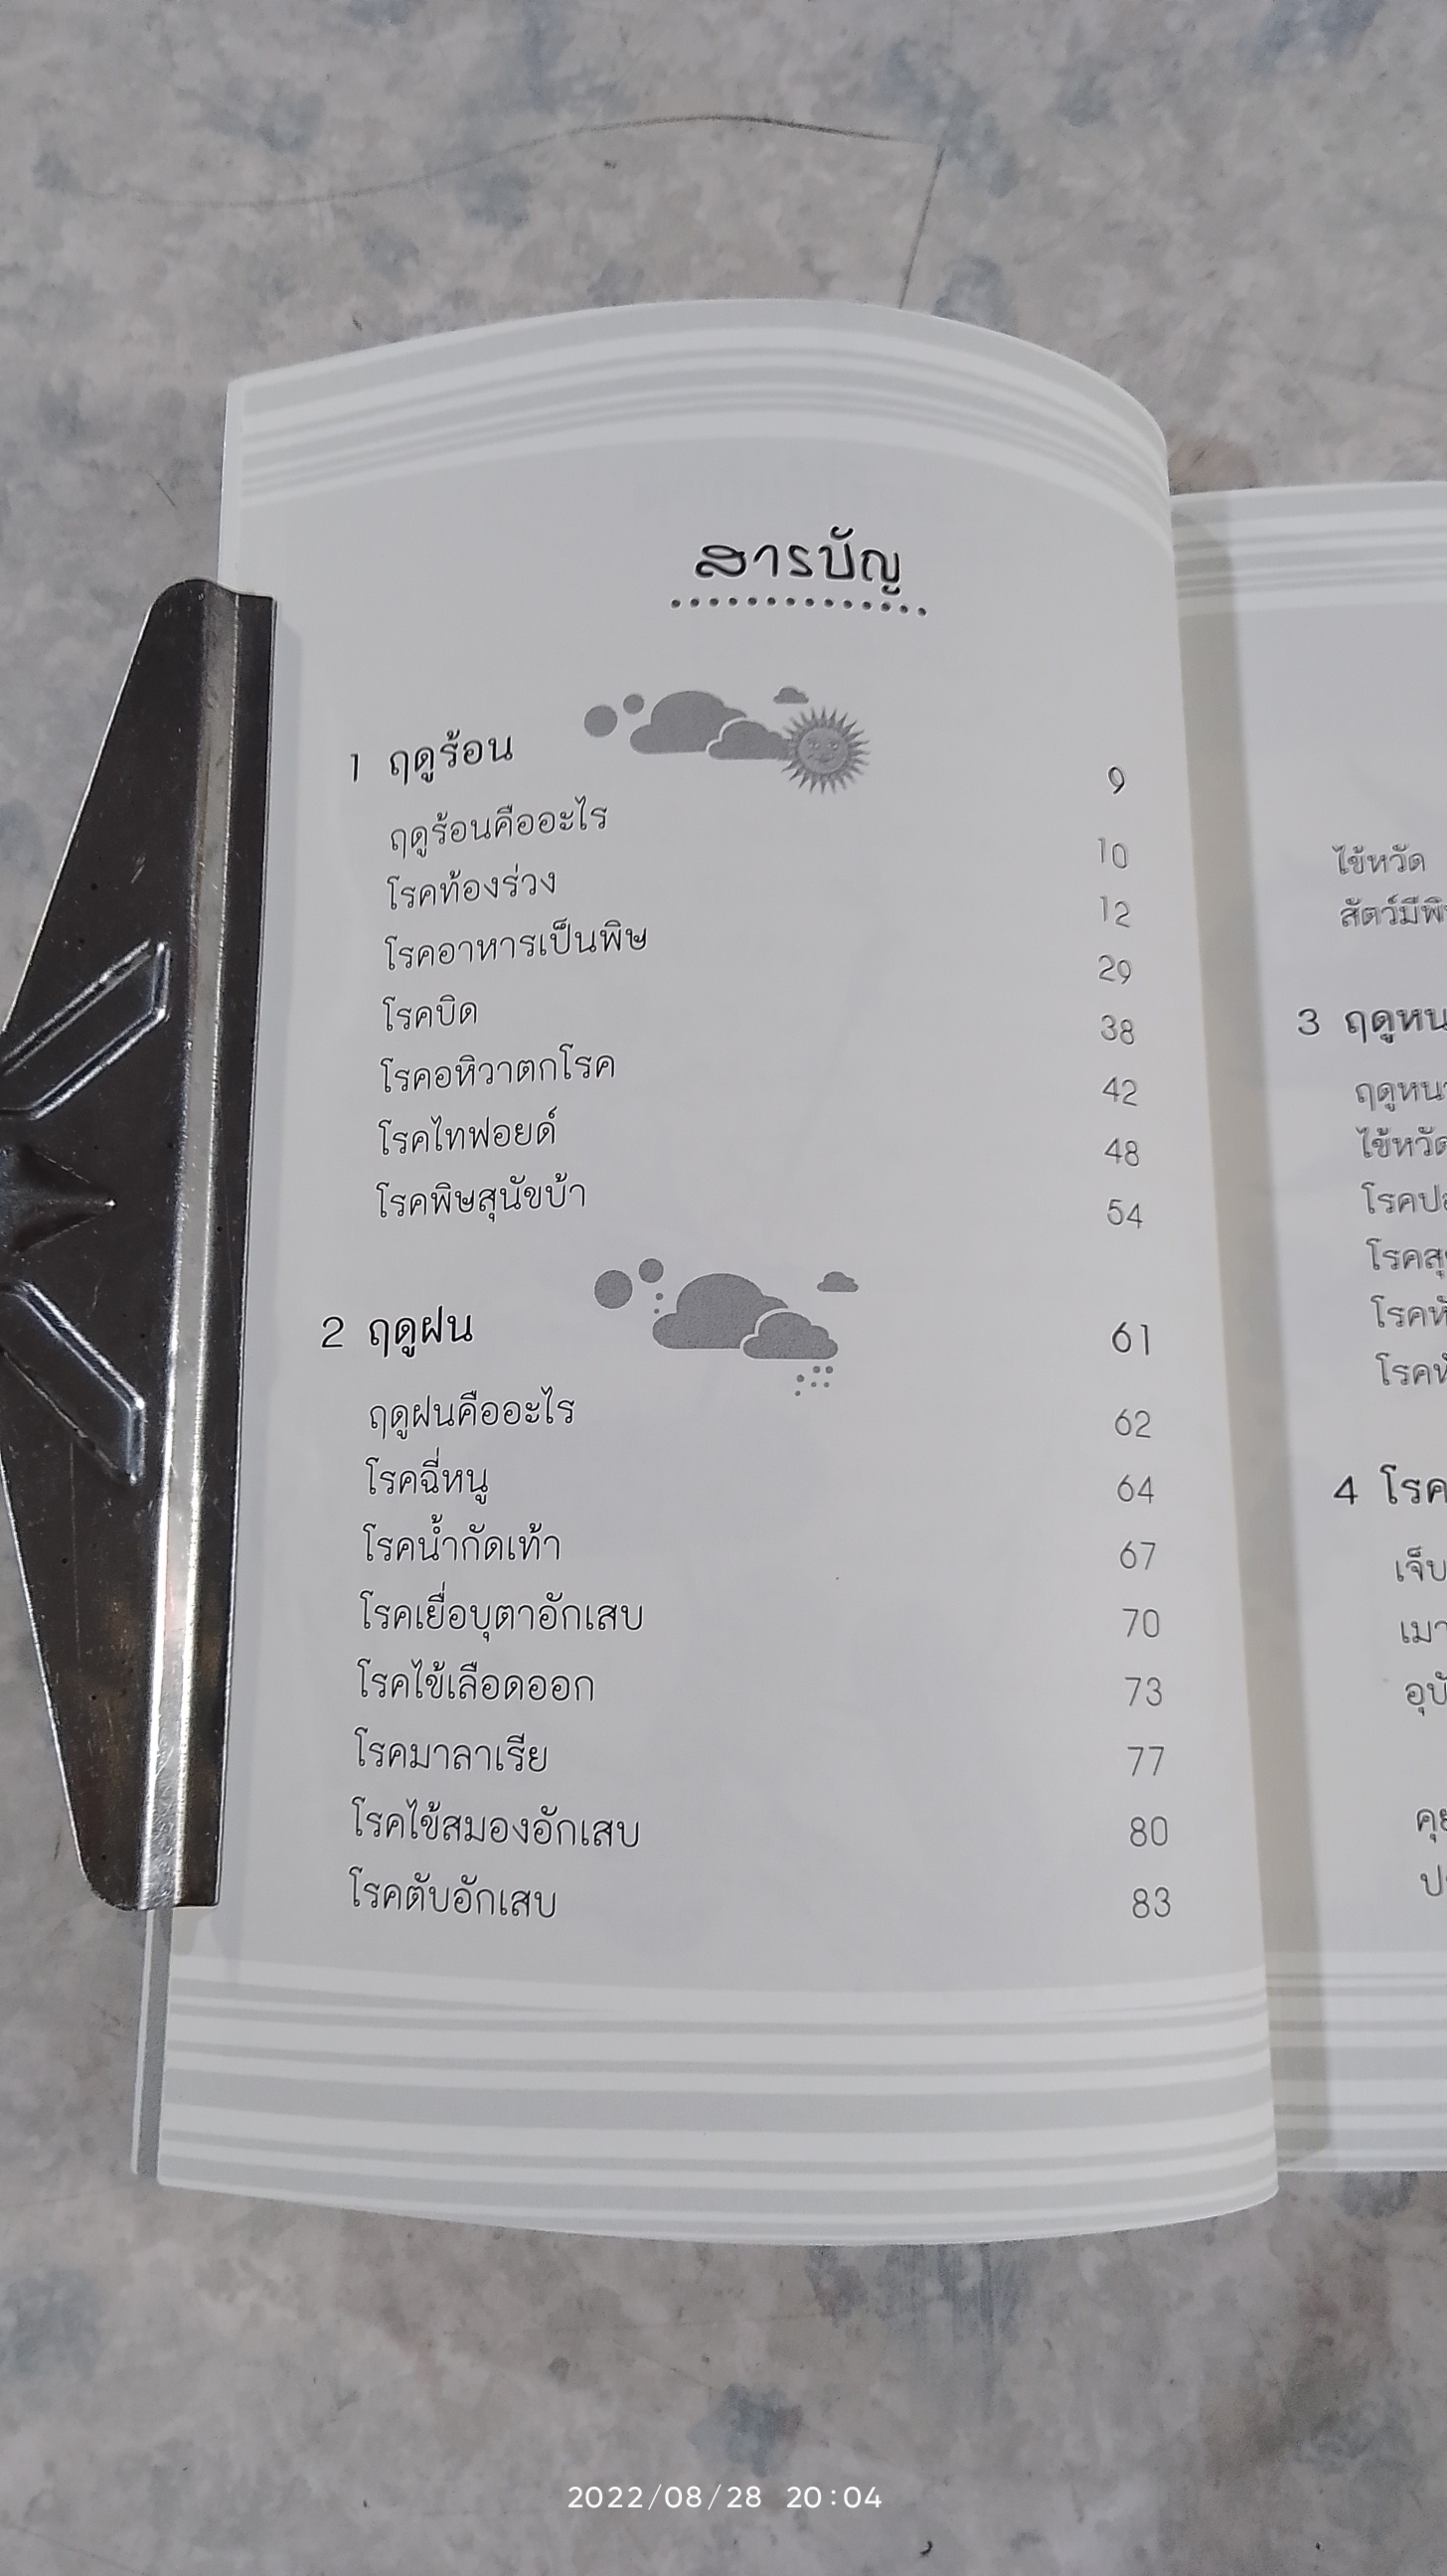 สารบัญ
1 ฤดูร้อน 9
ฤดูร้อนคืออะไร 10
โรคท้องร่วง 12
โรคอาหารเป็นพิษ 29
โรคบิด 38
โรคอหิวาตกโรค 42
โรคไทฟอยด์ 48
โรคพิษสุนัขบ้า 54
2 ฤดูฝน 61
ฤดูฝนคืออะไร 62
โรคฉี่หนู 64
โรคน้ำกัดเท้า 67
โรคเยื่อบุตาอักเสบ 70
โรคไข้เลือดออก 73
โรคมาลาเรีย 77
โรคไข้สมองอักเสบ 80
โรคตับอักเสบ 83
ไข้หวัด
สัตว์มีพิ
3 ฤดูหน
ฤดูหน
ไข้หวัด
โรคป
โรคสุ
โรคหั
โรคหั
4 โรค
เจ็บ
เมา
อุบั
คุ
ป
2022/08/28 20:04